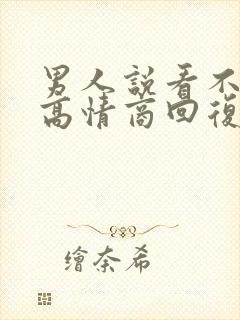 男人說看不
高情商回復
繪奈希